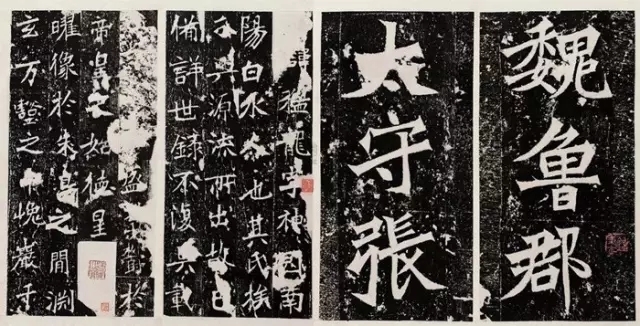 魏魯郡
太守張
猛龍字神囧南
陽白水人也其氏族
興源流所出故已
備詳世錄不復具載
盛欝於
帝皇之始德星
曜像於朱鳥之間淵
玄万壑之中巖乎